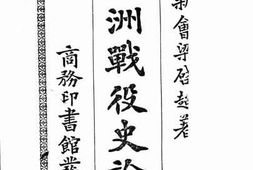 新會梁啓超著
洲戰役史論
商務印書館